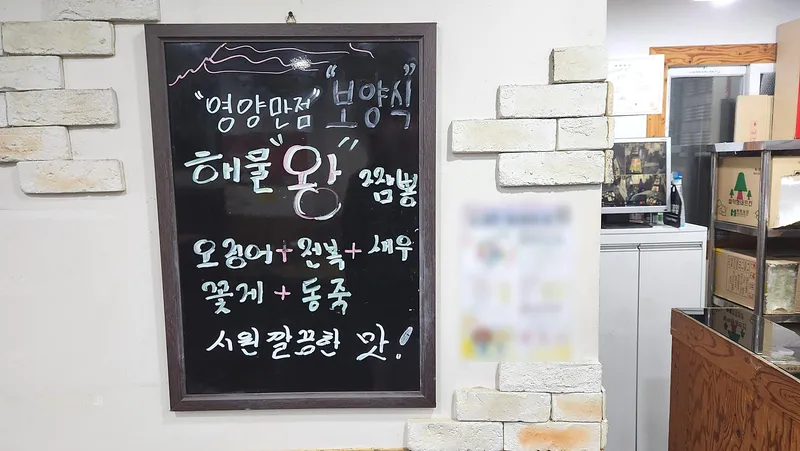 "영양만점" "보양식"
해물"왕"짬뽕
오징어+전복+새우
꽃게+동죽
시원깔끔한 맛!